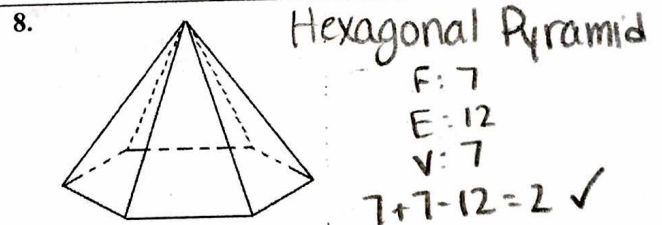 8.
Hexagonal Pyramid
F: 7
E: 12
V: 7
7+7-12=2 ✓